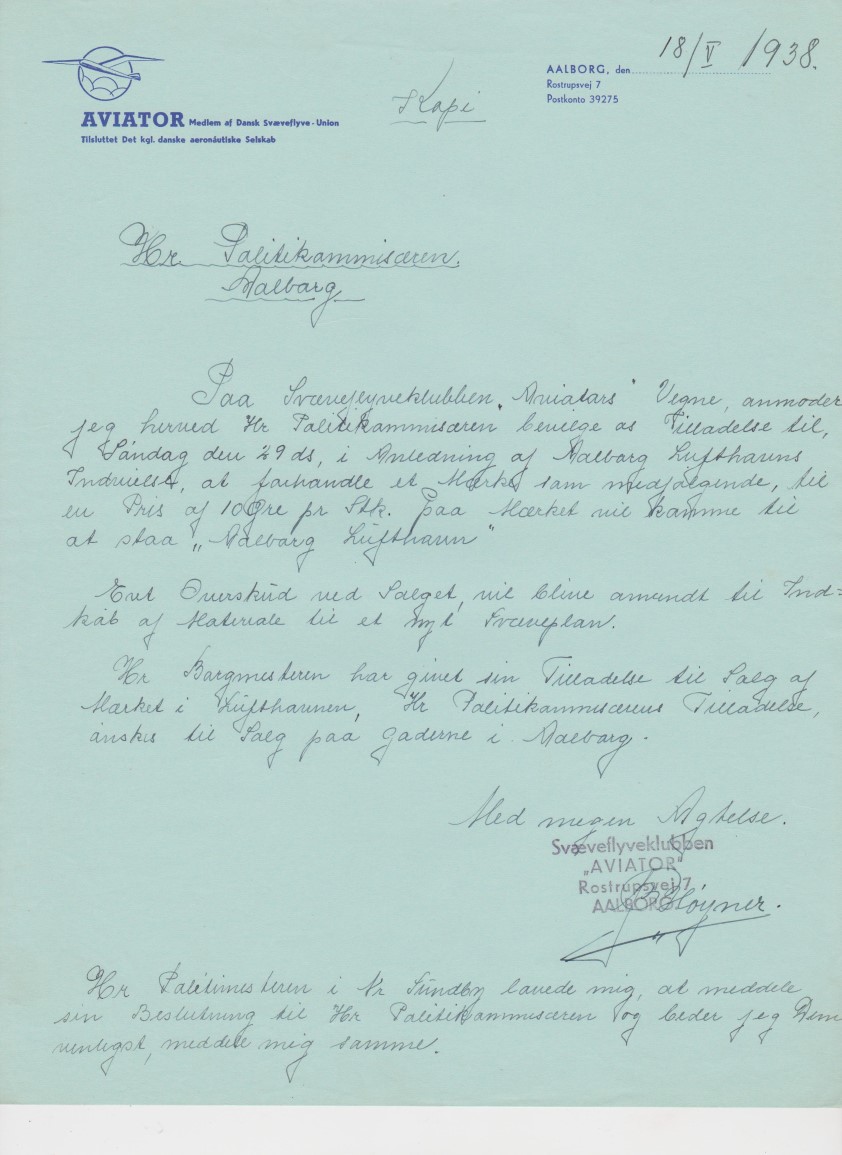 AALBORG, den 18/V 1938.
Rostrupsvej 7
Postkonto 39275
Kopi
AVIATOR Medlem af Dansk Svæveflyve-Union
Tilsluttet Det kgl. danske aeronáutiske Selskab
Hr Politikommisæren.
Aalborg
Paa Svæveflyveklubben „Aviators" Vegne, anmoder
jeg herved Hr Politikommisæren bevilge os Tilladelse til,
Søndag den 29 ds, i Anledning af Aalborg Lufthavns
Indvielse, at forhandle et Mærke som medfølgende, til
en Pris af 10 Øre pr Stk. paa Mærket vil komme til
at staa „Aalborg Lufthavn"
Evt Overskud ved Salget, vil blive anvendt til Ind=
køb af Materiale til et nyt Svæveplan.
Hr Borgmesteren har givet sin Tilladelse til Salg af
Mærket i Lufthavnen, Hr Politikommisærens Tilladelse,
ønskes til Salg paa Gaderne i Aalborg.
Med megen Agtelse.
Svæveflyveklubben
„AVIATOR"
Rostrupsvej 7,
AALBORG
Hr Politimesteren i Nr Sundby lovede mig, at meddele
sin Beslutning til Hr Politikommisæren og beder jeg Dem
venligst, meddele mig samme.